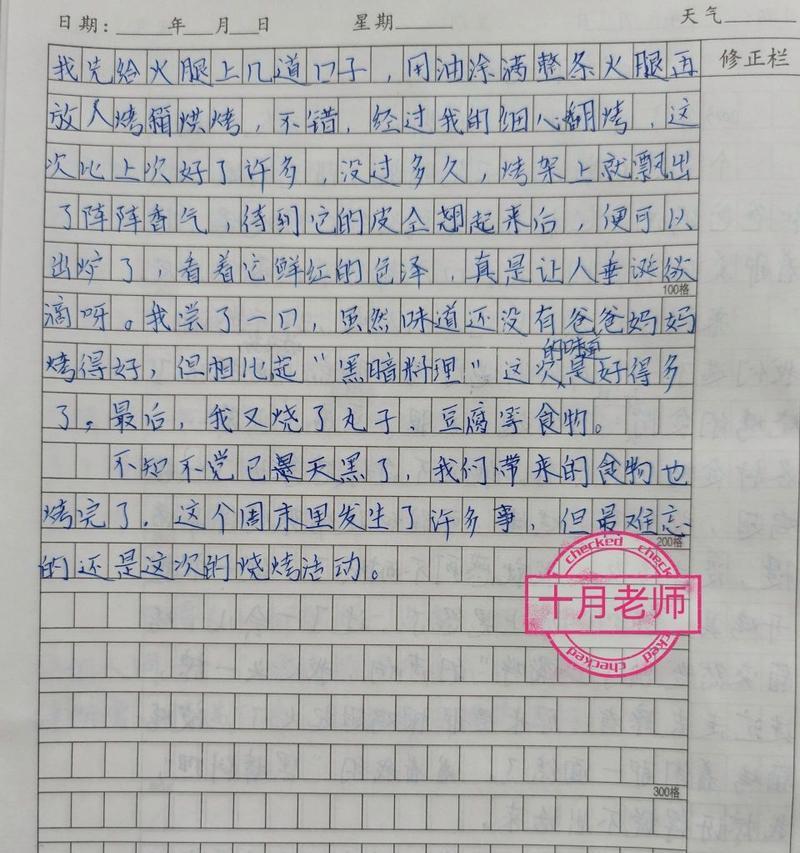 日期:____年__月__日 星期____ 天气____
修正栏
我先给火腿上几道口子，用油涂满整条火腿再
放入烤箱烘烤，不错，经过我的细心翻烤，这
次比上次好了许多，没过多久，烤架上就飘出
了阵阵香气，待到它的皮全翘起来后，便可以
出炉了，看着它鲜红的色泽，真是让人垂涎欲
100格
滴呀。我尝了一口，虽然味道还没有爸爸妈妈
烤得好，但相比起“黑暗料理”这次是好得多
的味道
了。最后，我又烧了丸子、豆腐等食物。
不知不觉已是天黑了，我们带来的食物也
烤完了．这个周末里发生了许多事，但最难忘
200格
的还是这次的烧烤活动。
checked check
十月老师
checked
300格